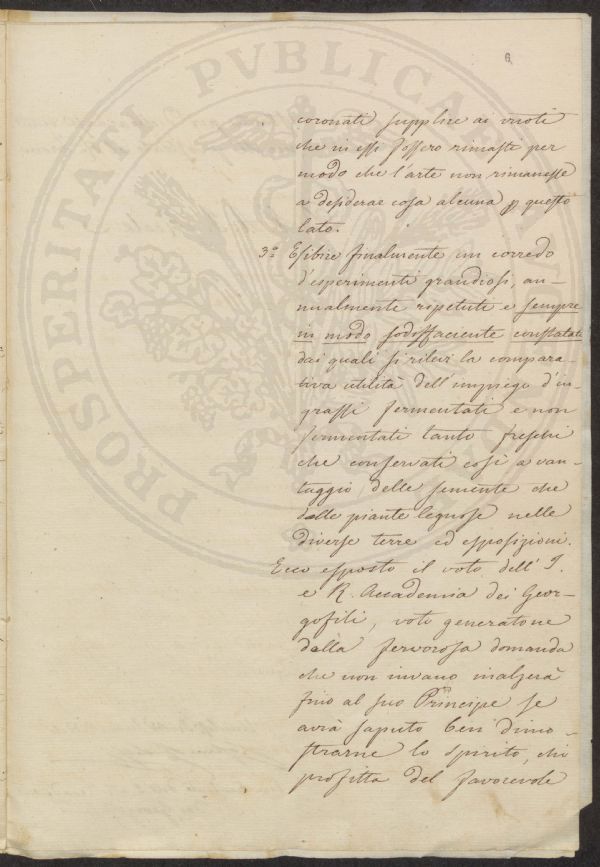 6
coronati supplire ai vuoti
che in essi fossero rimasti per
modo che l'arte non rimanesse
a desiderar cosa alcuna p questo
lato.
3.º Esibire finalmente un corredo
d'esperimenti grandiosi, an-
nualmente ripetuti e sempre
in modo sodisfaciente constatati
dai quali si rilevi la compara-
tiva utilità dell'impiego d'in-
grassi fermentati e non
fermentati tanto freschi
che conservati così a van-
taggio delle semente che
delle piante legnose nelle
diverse terre ed esposizioni.
Ecco esposto il voto dell'I.
e R. Accademia dei Geor-
gofili, voto generatone
dalla fervorosa domanda
che non invano inalzerà
fino al suo Principe se
avrà saputo ben dimo-
strarne lo spirito, chi
profitta del favorevole
PROSPERITATI PVBLICAE